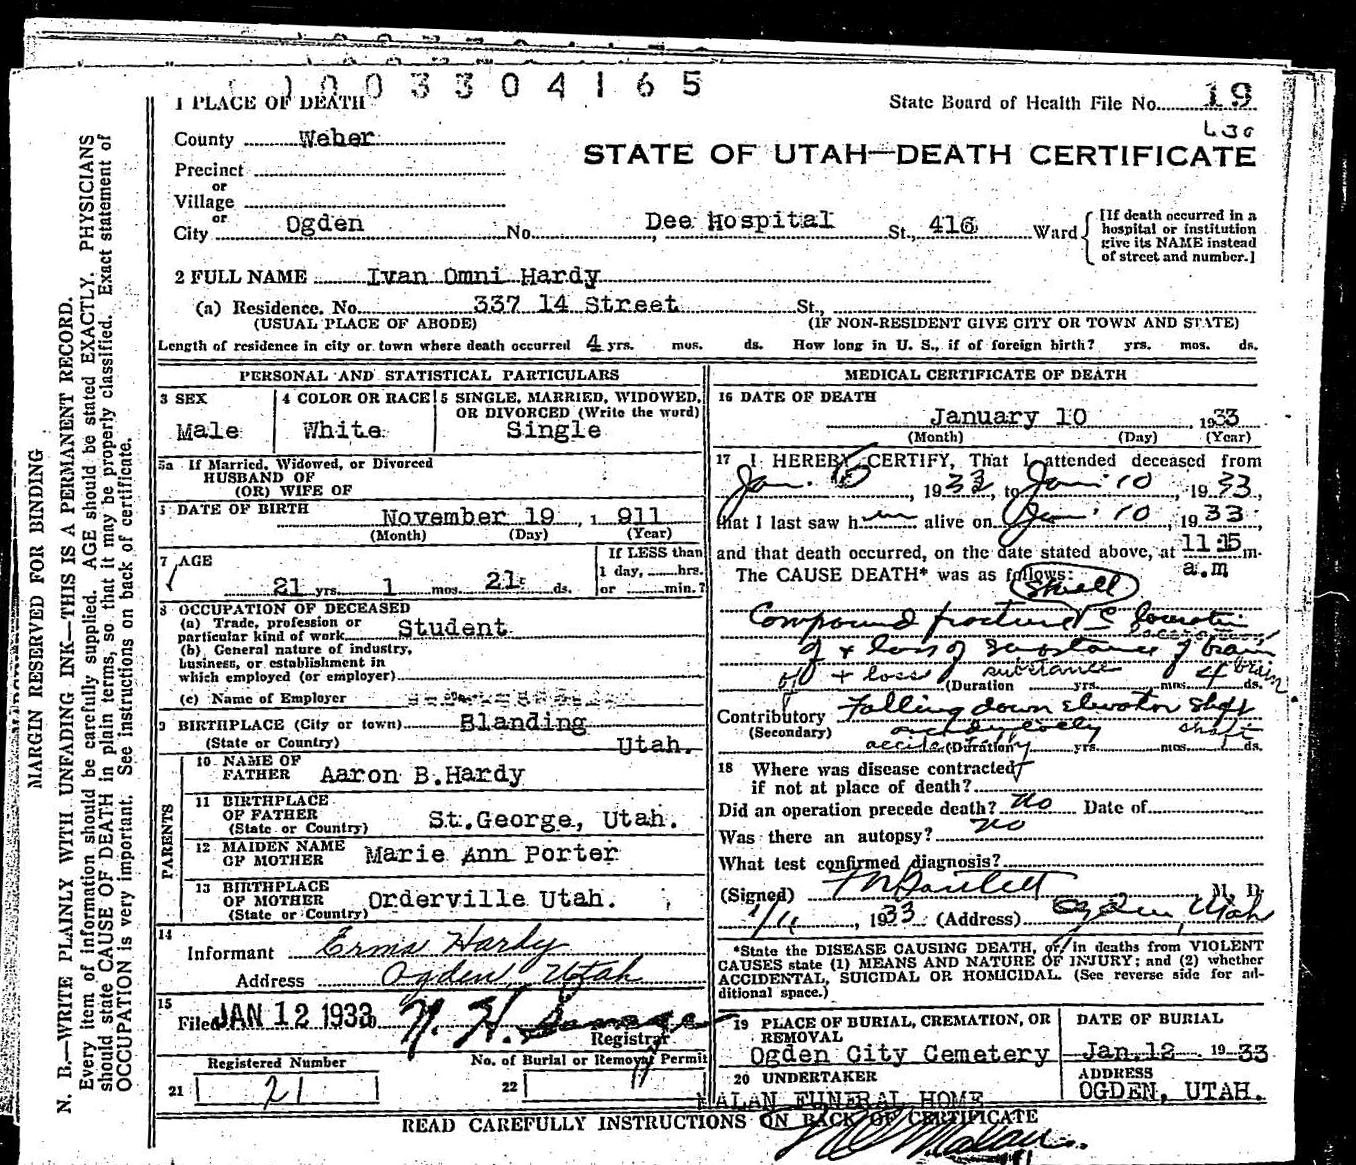 003304165
1 PLACE OF DEATH
State Board of Health File No. 19
County Weber
STATE OF UTAH—DEATH CERTIFICATE
Precinct
or
Village
or
City Ogden No. Dee Hospital St., 416 Ward
[If death occurred in a hospital or institution give its NAME instead of street and number.]
2 FULL NAME Ivan Omni Hardy
(a) Residence. No. 337 14 Street St.,
(USUAL PLACE OF ABODE) (IF NON-RESIDENT GIVE CITY OR TOWN AND STATE)
Length of residence in city or town where death occurred 4 yrs. mos. ds. How long in U. S., if of foreign birth? yrs. mos. ds.
PERSONAL AND STATISTICAL PARTICULARS
3 SEX
Male
4 COLOR OR RACE
White
5 SINGLE, MARRIED, WIDOWED, OR DIVORCED (Write the word)
Single
5a If Married, Widowed, or Divorced
HUSBAND OF
(OR) WIFE OF
DATE OF BIRTH
November 19, 1911
(Month) (Day) (Year)
7 AGE
21 yrs. 1 mos. 21 ds.
If LESS than
1 day, hrs.
or min.?
8 OCCUPATION OF DECEASED
(a) Trade, profession or
particular kind of work Student
(b) General nature of industry,
business, or establishment in
which employed (or employer)
(c) Name of Employer
9 BIRTHPLACE (City or town) Blanding
(State or Country) Utah.
PARENTS
10 NAME OF
FATHER Aaron B.Hardy
11 BIRTHPLACE
OF FATHER St.George, Utah.
(State or Country)
12 MAIDEN NAME
OF MOTHER Marie Ann Porter
13 BIRTHPLACE
OF MOTHER Orderville Utah.
(State or Country)
14
Informant Erma Hardy
Address Ogden, Utah
15
Filed JAN 12 1933
Registrar
Registered Number
No. of Burial or Removal Permit
21 21
22
MEDICAL CERTIFICATE OF DEATH
16 DATE OF DEATH
January 10, 1933
(Month) (Day) (Year)
17 I HEREBY CERTIFY, That I attended deceased from
Jan. 1933, to Jan. 10, 1933,
that I last saw him alive on Jan. 10, 1933,
and that death occurred, on the date stated above, at 11:15 m.
a.m
The CAUSE DEATH* was as follows:
Skull
Compound fracture
of & loss of substance of brain
of + loss substance brain
(Duration yrs. mos. 4 ds.
Contributory Falling down elevator shaft
(Secondary) accidently shaft
(Duration) yrs. mos. ds.
18 Where was disease contracted
if not at place of death?
Did an operation precede death? no Date of
Was there an autopsy? no
What test confirmed diagnosis?
(Signed) Bartlett, M. D.
1933 (Address) Ogden, Utah
*State the DISEASE CAUSING DEATH, or, in deaths from VIOLENT
CAUSES state (1) MEANS AND NATURE OF INJURY; and (2) whether
ACCIDENTAL, SUICIDAL OR HOMICIDAL. (See reverse side for ad-
ditional space.)
19 PLACE OF BURIAL, CREMATION, OR REMOVAL
Ogden City Cemetery
DATE OF BURIAL
Jan. 12 1933
20 UNDERTAKER
MALAN FUNERAL HOME
ADDRESS
OGDEN, UTAH.
READ CAREFULLY INSTRUCTIONS ON BACK OF CERTIFICATE
MARGIN RESERVED FOR BINDING
N. B.—WRITE PLAINLY WITH UNFADING INK—THIS IS A PERMANENT RECORD.
Every item of information should be carefully supplied. AGE should be stated EXACTLY. PHYSICIANS
should state CAUSE OF DEATH in plain terms, so that it may be properly classified. Exact statement of
OCCUPATION is very important. See instructions on back of certificate.